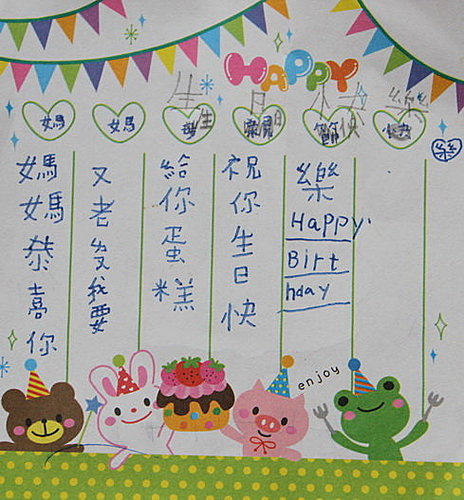 HAPPY
媽 媽 生 日 快 樂
媽媽恭喜你
又老歲我要
給你蛋糕
祝你生日快
樂
Happy
Birt
hday
enjoy